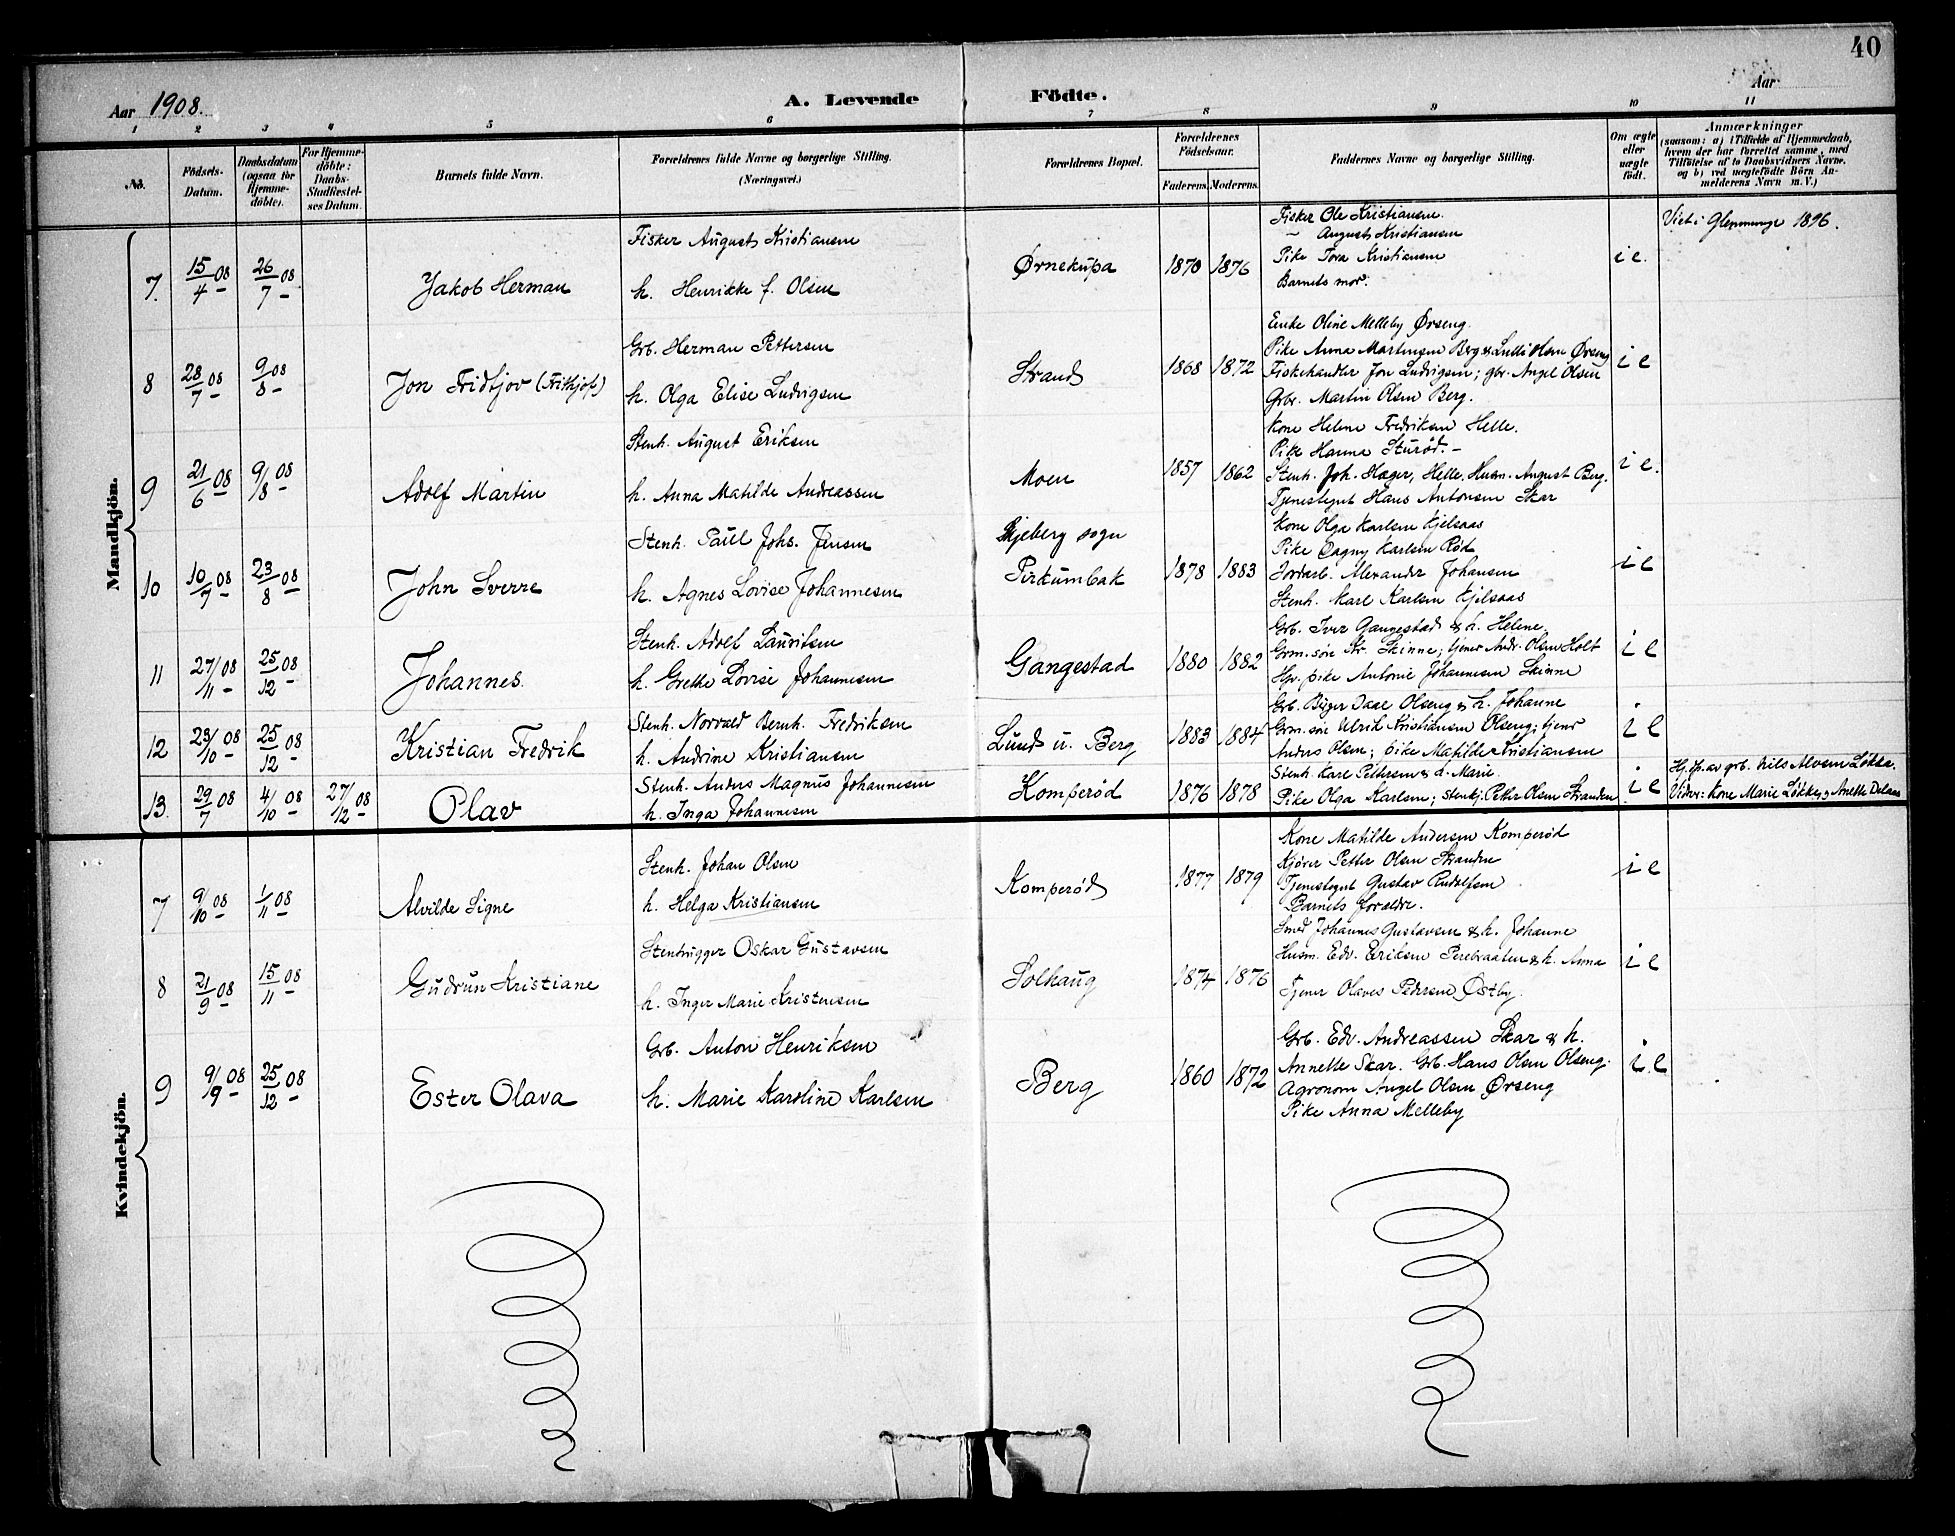 40
Aar 1908.
A. Levende Födte.
Aar
1 2 3 4 5 6 7 8 9 10 11
No.
Födsels-Datum.
Daabsdatum (ogsaa for Hjemme-döbte).
For Hjemme-döbte: Daabs-Stadfæstel-ses Datum.
Barnets fulde Navn.
Forældrenes fulde Navne og borgerlige Stilling. (Næringsvei.)
Forældrenes Bopæl.
Forældrenes Födselsaar.
Faderens. Moderens.
Faddernes Navne og borgerlige Stilling.
Om ægte eller uægte födt.
Anmærkninger
(saasom: a) i Tilfælde af Hjemmedaab, hvem der har forrettet samme, med Tilföielse af to Daabsvidners Navne, og b) ved uægtefödte Börn An-melderens Navn m. V.)
Mandkjön.
7. 15/4 08 26/7 08 Jakob Herman
Fisker August Kristiansen
h. Henrikke f. Olsen
Ørnekupa 1870 1876
Fisker Ole Kristiansen.
~ August Kristiansen
Pike Tora Kristiansen
Barnets mor.
i e.
Viet i Glemminge 1896.
8 28/7 08 9/8 08 Jon Fridtjov (Frithjof)
Grb. Herman Pettersen
h. Olga Elise Ludvigsen
Strand 1868 1872
Enke Oline Melleby Ørseng.
Pike Anna Martinsen Berg & Olsen Ørseng
Fiskehandler Jon Ludvigsen; gbr. Angel Olsen
Grbr. Martin Olsen Berg.
i e
9 21/6 08 9/8 08 Adolf Martin
Stenh. August Eriksen
h. Anna Matilde Andreassen
Moen 1857 1862
Kone Helene Fredriksen Helle.
Pike Hanna Sturød.-
Stenh. Joh. Hager, Helle. Husm. August Berg.
Tjenestegut Hans Antonsen Skar
i e.
10 10/7 08 23/8 08 John Sverre
Stenh. Paul Johs. Jensen
h. Agnes Lovise Johannesen
Skjeberg sogn
Pirkumbak 1878 1883
Kone Olga Karlsen Kjelsaas
Pike Dagny Karlsen Rød
Jordarb. Alexander Johansen
Stenh. Karl Karlsen Kjelsaas
i e
11 27/11 08 25/12 08 Johannes.
Stenh. Adolf Lauritsen
h. Grethe Lovise Johannesen
Gangestad 1880 1882
Grb. Iver Gangestad & h. Helene.
Grm. søn Kr. Skinne; tjener Andr. Olsen Holt
Hpr. pike Antonie Johannesen Skinne
i e
12 23/10 08 25/12 08 Kristian Fredrik
Stenh. Norvald Bernh. Fredriksen
h. Andrine Kristiansen
Lund u. Berg 1883 1884
Grb. Birger Daae Olseng & h. Johanne
Grm. søn Ulrik Kristiansen Olseng; tjener
Anders Olsen; pike Matilde Kristiansen
i e
13. 29/7 08 4/10 08 27/12 08 Olav
Stenh. Anders Magnus Johannesen
h. Inga Johannesen
Komperød 1876 1878
Stenh. Karl Pettersen & h. Marie.
Pike Olga Karlsen; stenkj. Petter Olsen Stranden
i e
Hj. dp. av grb. Nils Alvsen Løkka.
Vidner: Kone Marie Løkke og Anette
Kvindekjön.
7 9/10 08 1/11 08 Alvilde Signe
Stenh. Johan Olsen
h. Helga Kristiansen
Komperød 1877 1879
Kone Matilde Andersen Komperød
Kjører Petter Olsen Stranden
Tjenestegut Gustav Rudolfsen
Barnets forældre.
i e
8 21/9 08 15/11 08 Gudrun Kristiane
Stenhugger Oskar Gustavsen
h. Inger Marie Kristensen
Solhaug 1874 1876
Smed Johannes Gustavsen & h. Johanne
Husm. Edv. Eriksen Perebraaten & h. Anna
Tjener Olaves Pedersen Østby.
i e
9 9/9 08 25/12 08 Ester Olava
Grb. Anton Henriksen
h. Marie Karoline Karlsen
Berg 1860 1872
Grb. Edv. Andreassen Skar & h.
Annette Skar. Grb. Hans Olsen Olseng.
Agronom Angel Olsen Ørseng
Pike Anna Melleby
i e